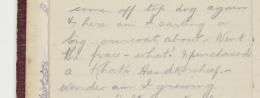 come off top dog again
& here am I casting a
big overcoat about. Went
the pace - what! & purchased
a Khaki Handkerchief.
wonder am I growing